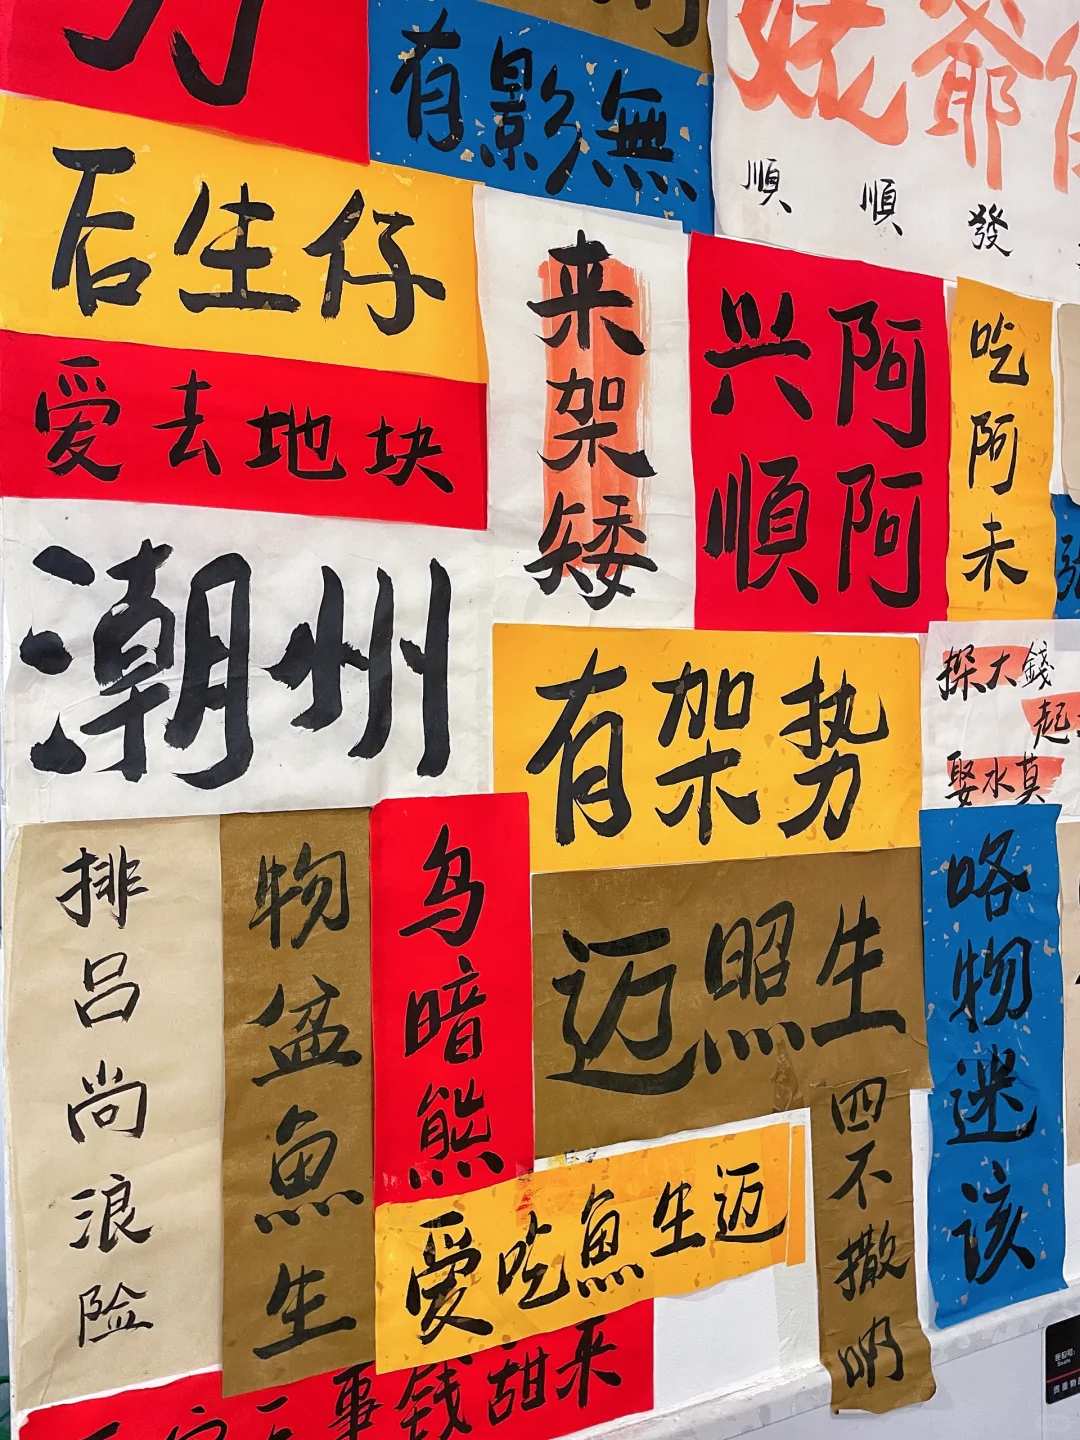 有影無
姥爺
順 順 發
后生仔
爱去地块
来架矮
兴阿
順阿
吃阿未
潮州
有架势
探大錢
起
娶水莫
排吕尚浪险
物盆魚生
乌暗熊
迈照生
爱吃魚生迈
四不撒呐
咯物迷该
事钱甜来